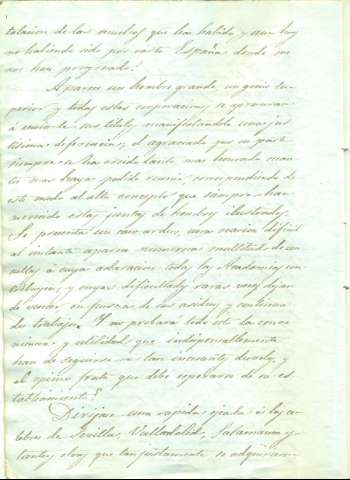 talaion de las muchas que han habido, y aun hoy
no habiendo sido por cierto España donde
nos han prosperado?
Aparece un hombre grande, un genio su-
perior y todas estas corporaciones se apresuran
á enviarle sus titulos manifestandole una jus-
tisima deferencia; el agraciado por su parte
siempre se ha creido tanto mas honrado cuan-
tos mas haya podido reunir, correspondiendo de
este modo al alto concepto que siempre han
merecido estas juntas de hombres ilustrados.
Se presenta un caso arduo, una cuestion dificil
al instante aparece numerosa multitud de
á cuya aclaracion todas las Academias con-
tribuyen, y cuyas dificultades raras veces dejan
de vencer en fuerza de sus asiduos y continua-
dos trabajos. Y no probará todo esto la conve-
niencia y utilidad que indispensablemente
han de seguirse a tan incesantes desvelos, y
el opimo fruto que debe esperarse de su es-
tablecimiento?
Dirijase una rapida ojeada á las ce-
lebres de Sevilla, Valladolid, Salamanca y
tantas otras que tan justamente se adquirieron